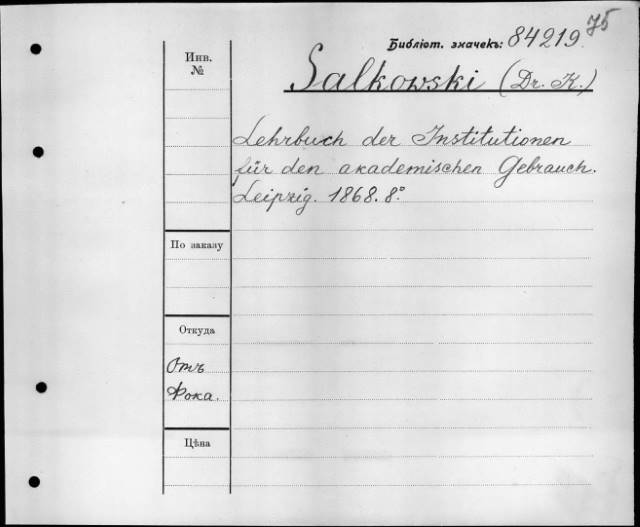 75
Библіот. значекъ: 84219.
Инв.
№
Salkowski (Dr. K.)
Lehrbuch der Institutionen
für den akademischen Gebrauch.
Leipzig. 1868. 8°
По заказу
Откуда
Отъ
Фока.
Цѣна